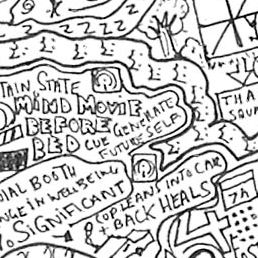 Z Z Z Z
TAIN STATE
MIND MOVIE
BEFORE GENERATE
BED CUE FUTURE SELF
THA
SOU
DIAL BOOTH
NGE IN WELLBEING
SIGNIFICANT
LEANS INTO CAR
+ BACK HEALS
7A